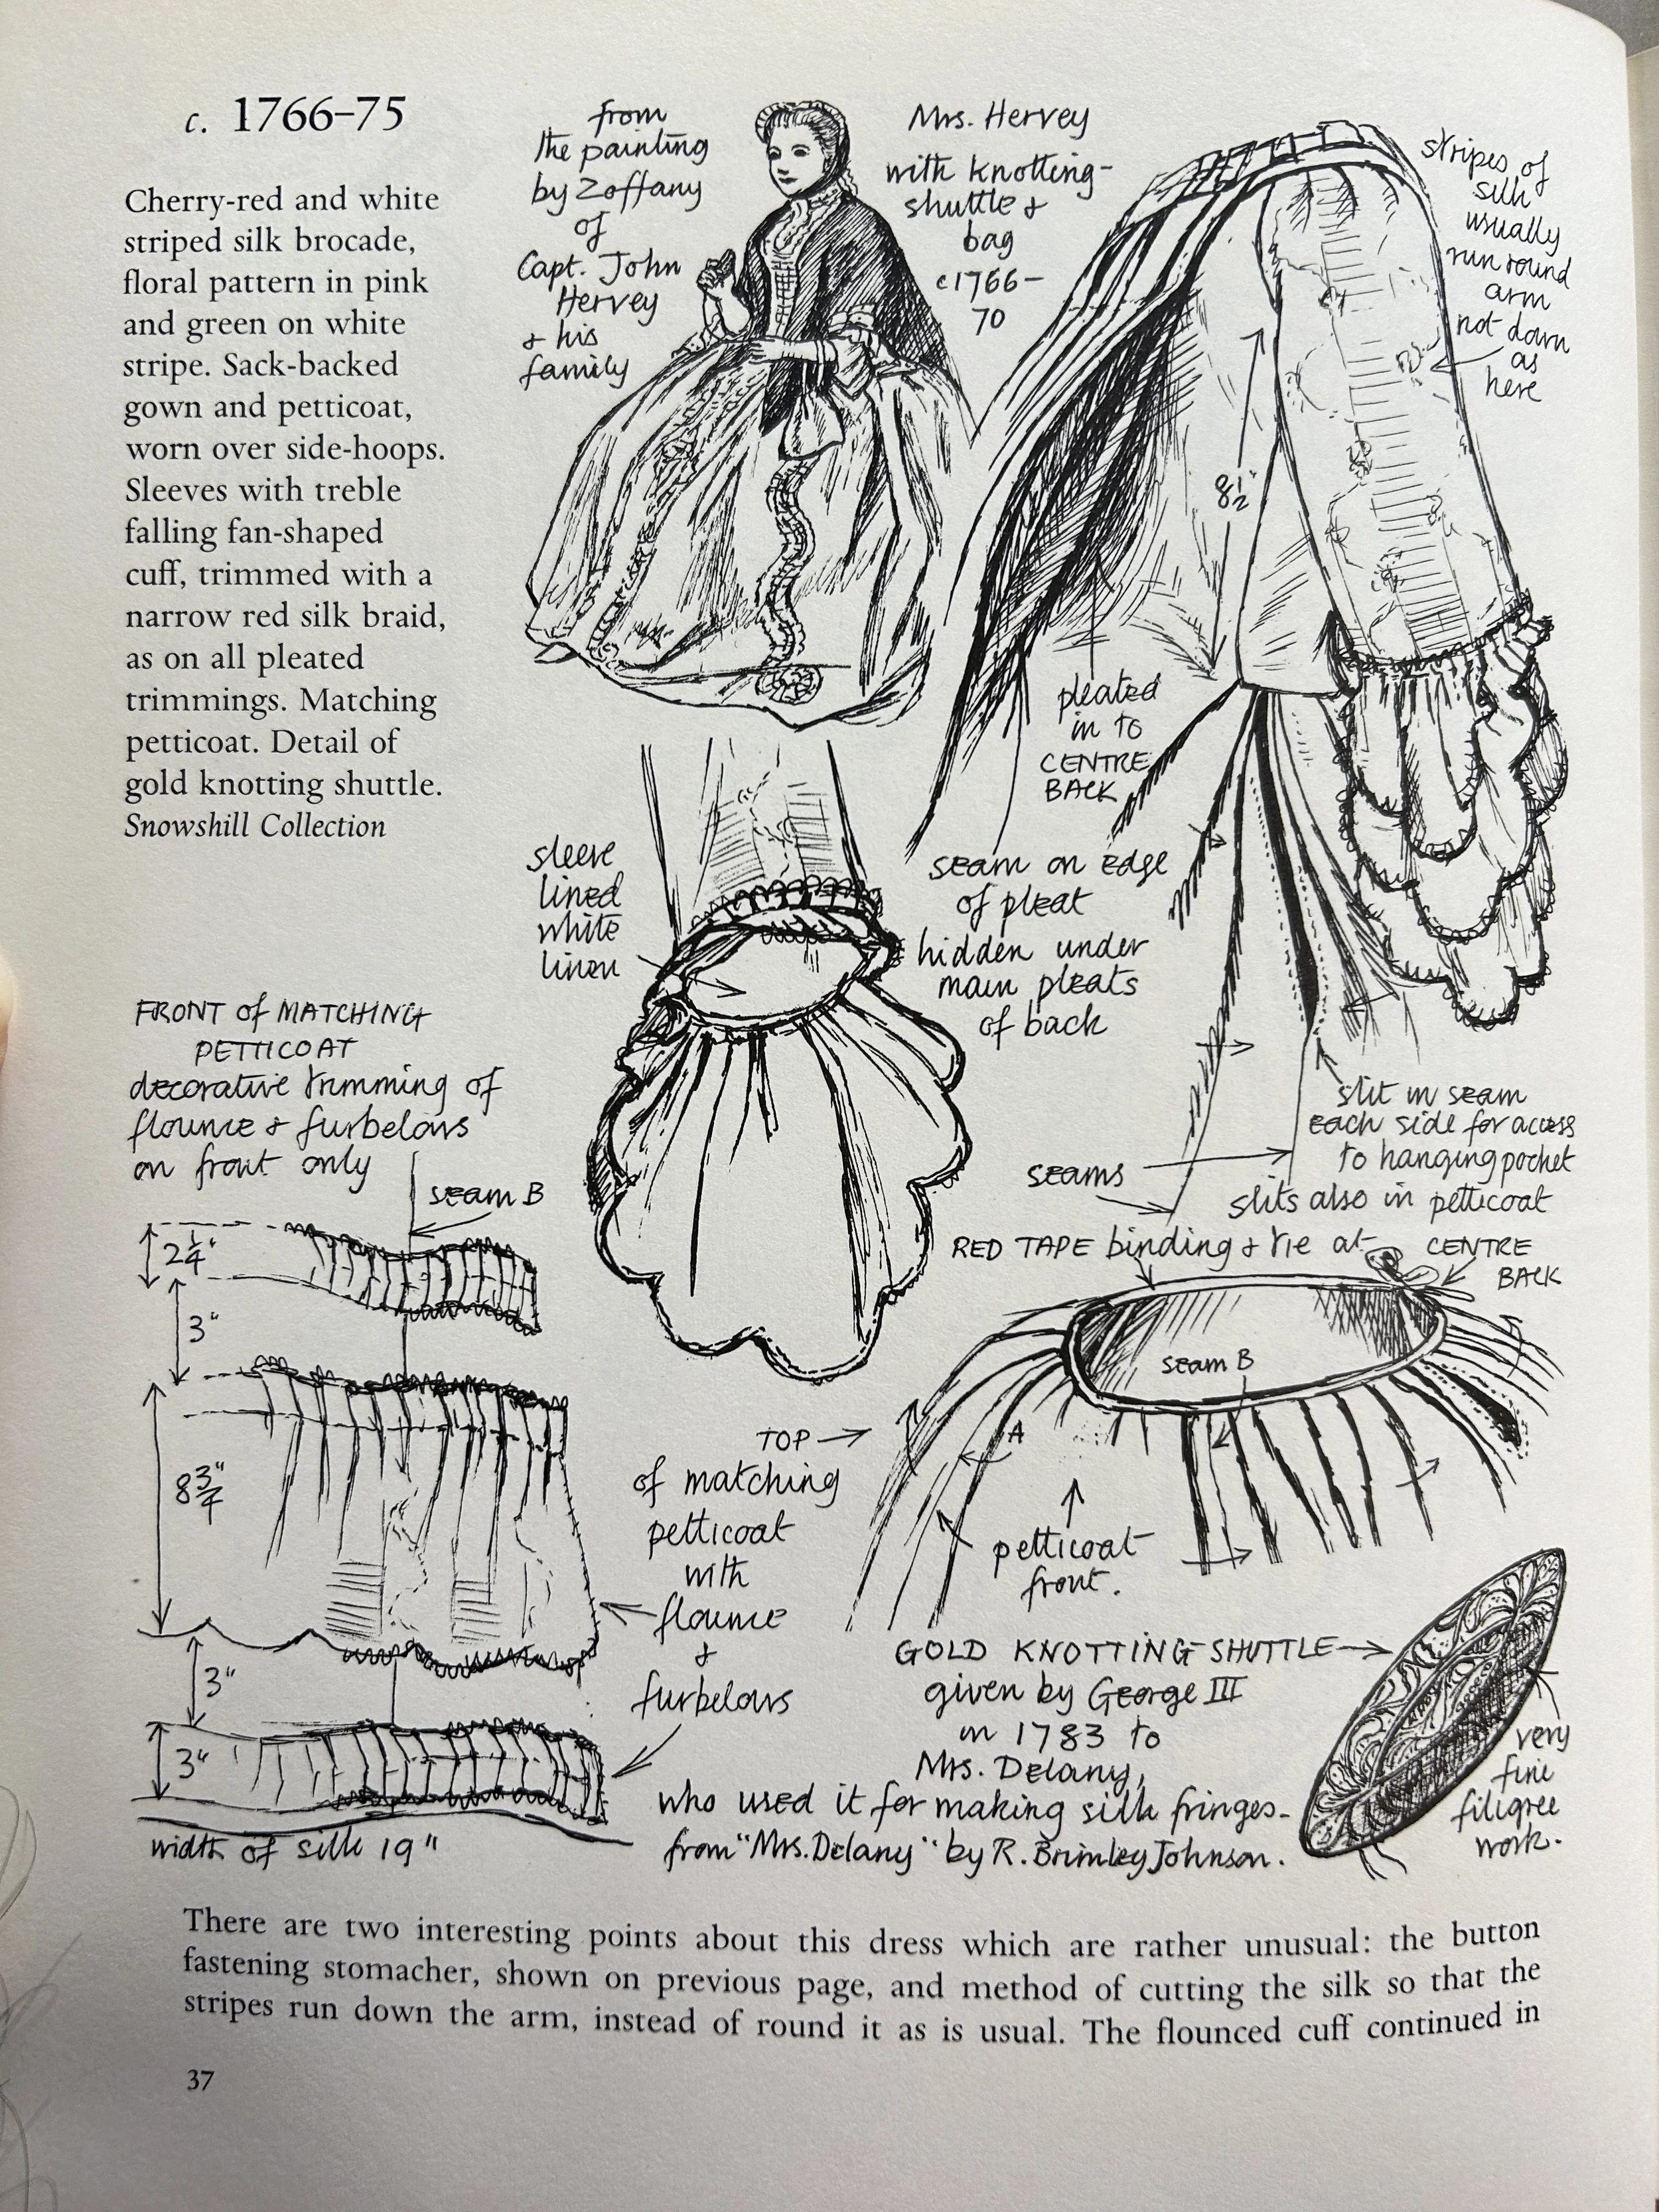 c. 1766–75
Cherry-red and white
striped silk brocade,
floral pattern in pink
and green on white
stripe. Sack-backed
gown and petticoat,
worn over side-hoops.
Sleeves with treble
falling fan-shaped
cuff, trimmed with a
narrow red silk braid,
as on all pleated
trimmings. Matching
petticoat. Detail of
gold knotting shuttle.
Snowshill Collection
from
the painting
by Zoffany
of
Capt. John
Hervey
& his
family
Mrs. Hervey
with knotting-
shuttle &
bag
c1766–
70
stripes of
silk
usually
run round
arm
not down
as
here
8½"
pleated
in to
CENTRE
BACK
sleeve
lined
white
linen
seam on edge
of pleat
hidden under
main pleats
of back
slit in seam
each side for access
to hanging pocket
slits also in petticoat
seams
FRONT of MATCHING
PETTICOAT
decorative trimming of
flounce & furbelows
on front only
seam B
2¼"
3"
8¾"
3"
3"
width of silk 19"
RED TAPE binding & tie at
CENTRE
BACK
seam B
A
TOP
of matching
petticoat
with
flounce
&
furbelows
petticoat
front.
GOLD KNOTTING-SHUTTLE
given by George III
in 1783 to
Mrs. Delany,
who used it for making silk fringes-
from "Mrs. Delany" by R. Brimley Johnson.
very
fine
filigree
work.
There are two interesting points about this dress which are rather unusual: the button
fastening stomacher, shown on previous page, and method of cutting the silk so that the
stripes run down the arm, instead of round it as is usual. The flounced cuff continued in
37